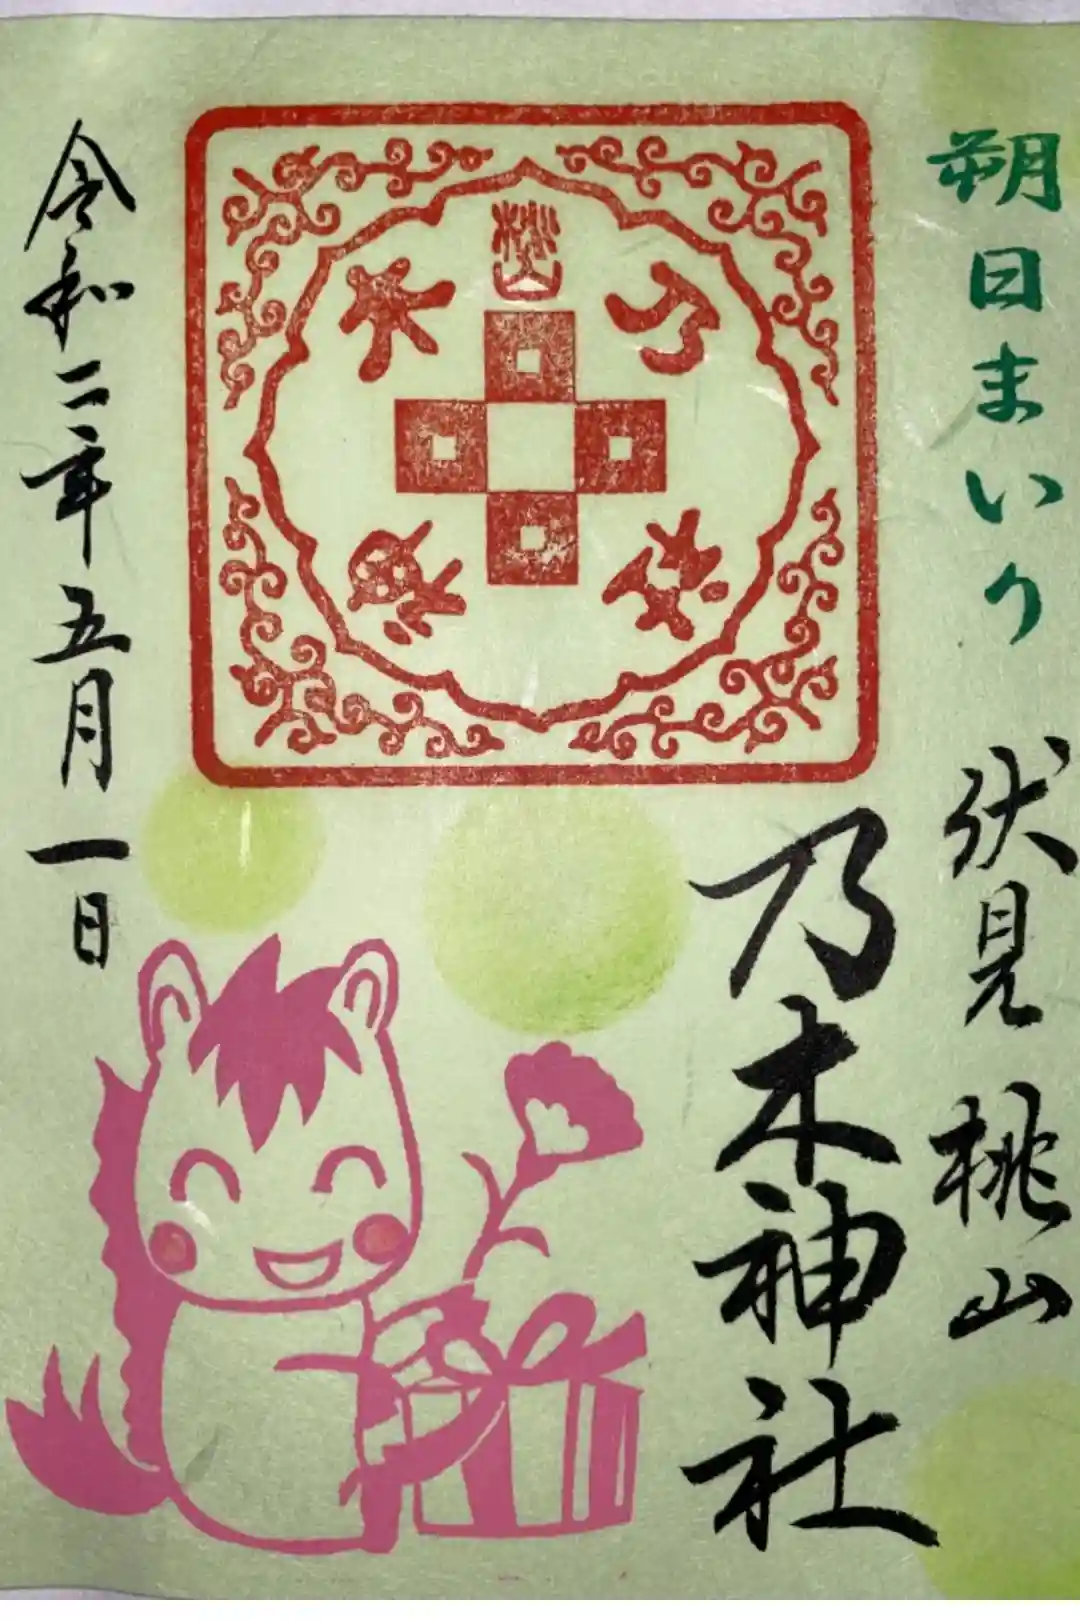 朔日まいり
伏見 桃山
乃木神社
桃山
乃木神社
令和二年五月一日